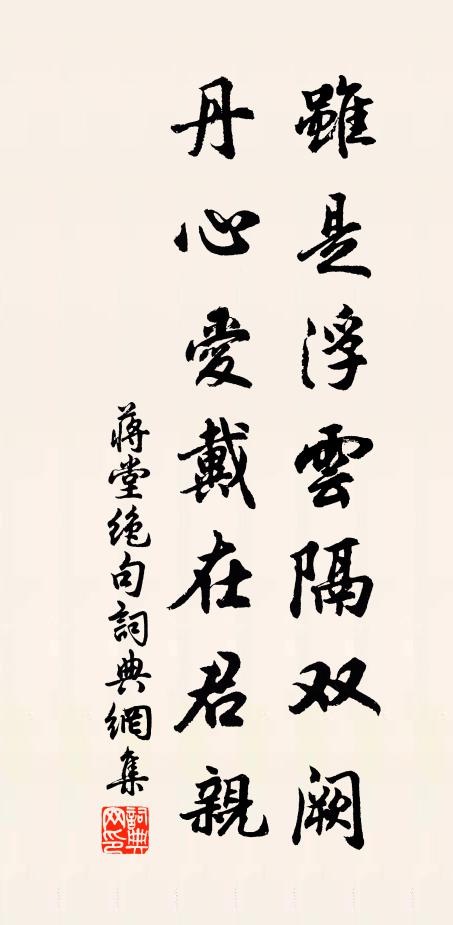 雖是浮雲隔双闕
丹心愛戴在君親
蔣堂絶句詞典網集
詞典网印